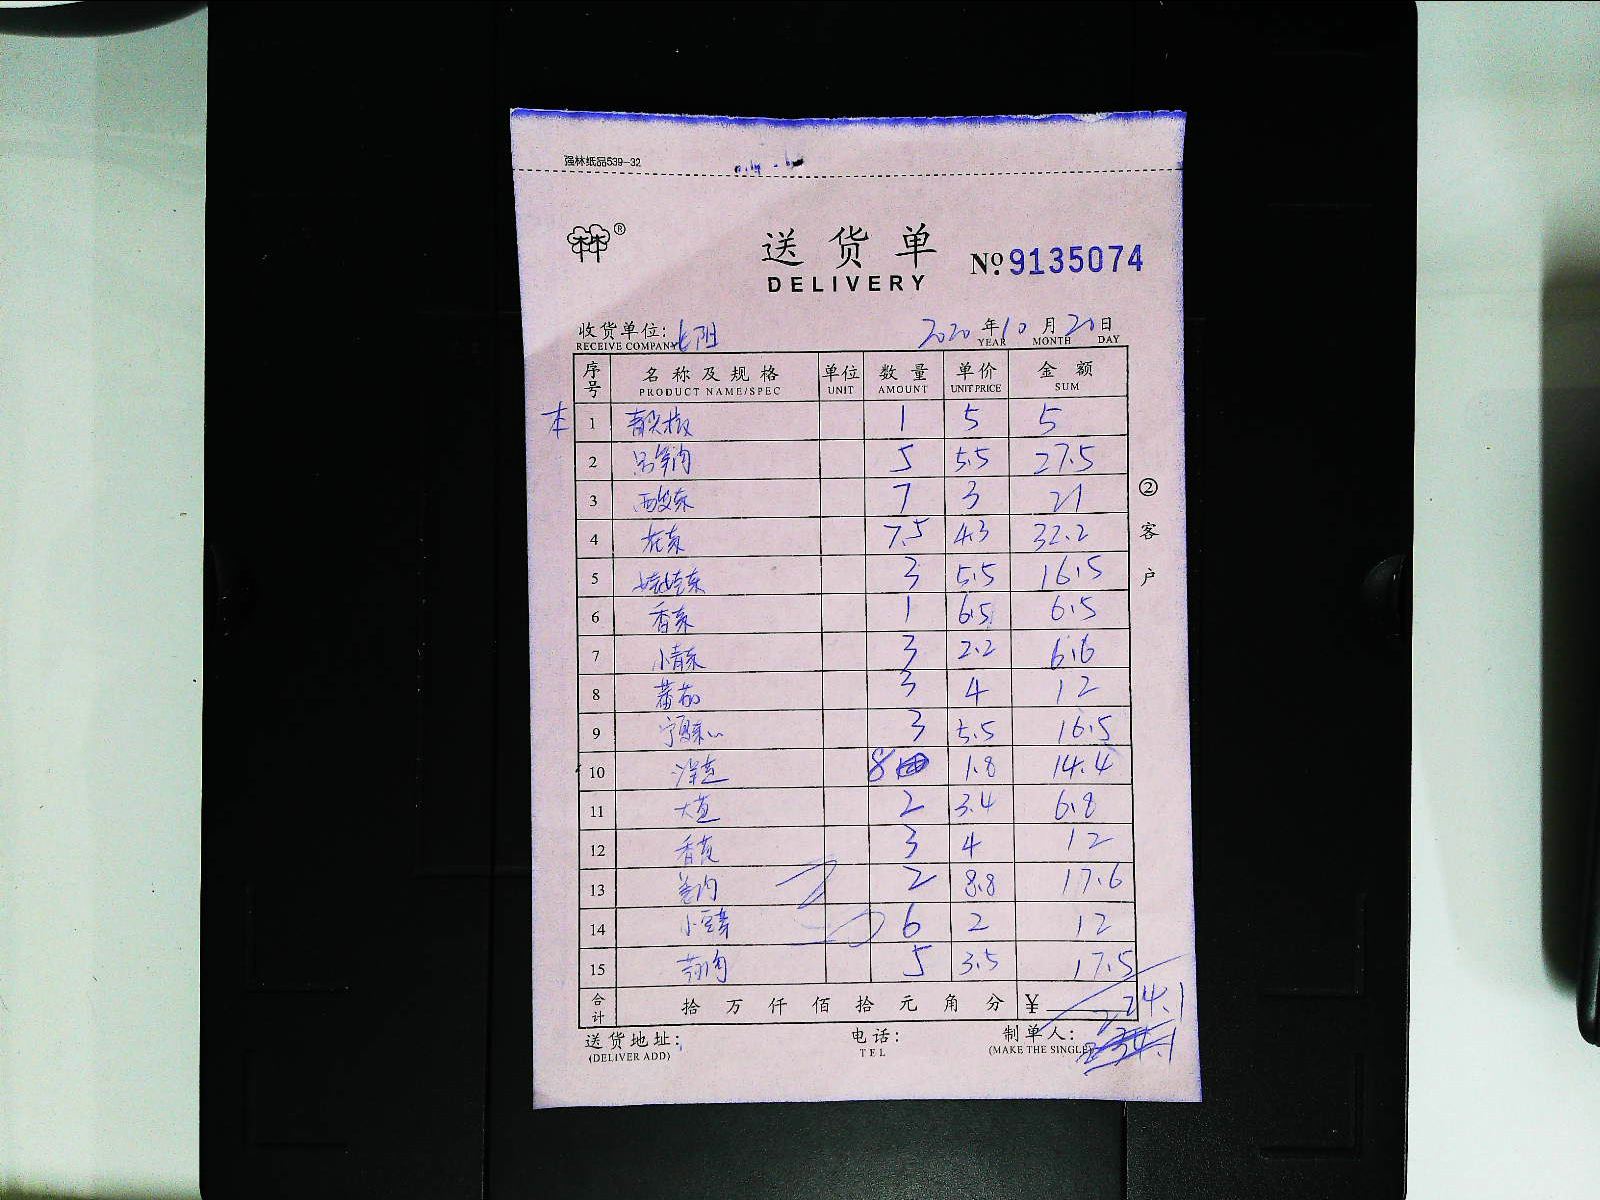 强林纸品539-32
林®
送货单
DELIVERY
№ 9135074
收货单位:
RECEIVE COMPANY
2020年10月20日
YEAR MONTH DAY
序号 名称及规格 单位 数量 单价 金额
PRODUCT NAME/SPEC UNIT AMOUNT UNIT PRICE SUM
本 1 青尖椒 1 5 5
2 5 5.5 27.5
3 7 3 21
4 花菜 7.5 4.3 32.2
5 娃娃菜 3 5.5 16.5
6 香菜 1 6.5 6.5
7 小青菜 3 2.2 6.6
8 蕃茄 3 4 12
9 宁夏菜心 3 5.5 16.5
10 洋芋 8 1.8 14.4
11 大 2 3.4 6.8
12 香 3 4 12
13 姜 2 8.8 17.6
14 小豆芽 6 2 12
15 5 3.5 17.5
合计 拾万仟佰拾元角分 ¥ 224.1
送货地址: 电话: 制单人:
(DELIVER ADD) TEL (MAKE THE SINGLE)
②客户